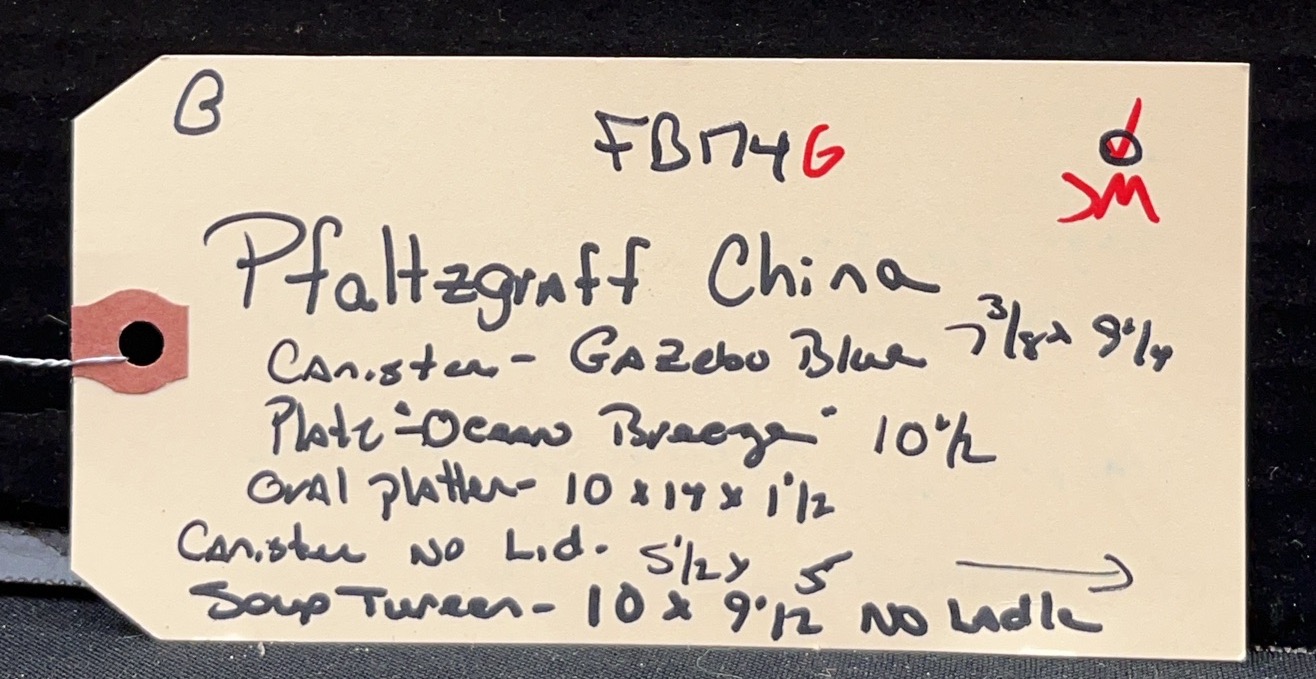 B
FB174G
JM
Pfaltzgraff China
Canister - Gazebo Blue 7 3/8 x 9 1/4
Plate "Ocean Breeze" 10 1/2
Oval platter - 10 x 14 x 1 1/2
Canister No Lid. 5 1/2 x 5
Soup Tureen - 10 x 9 1/2 No Ladle